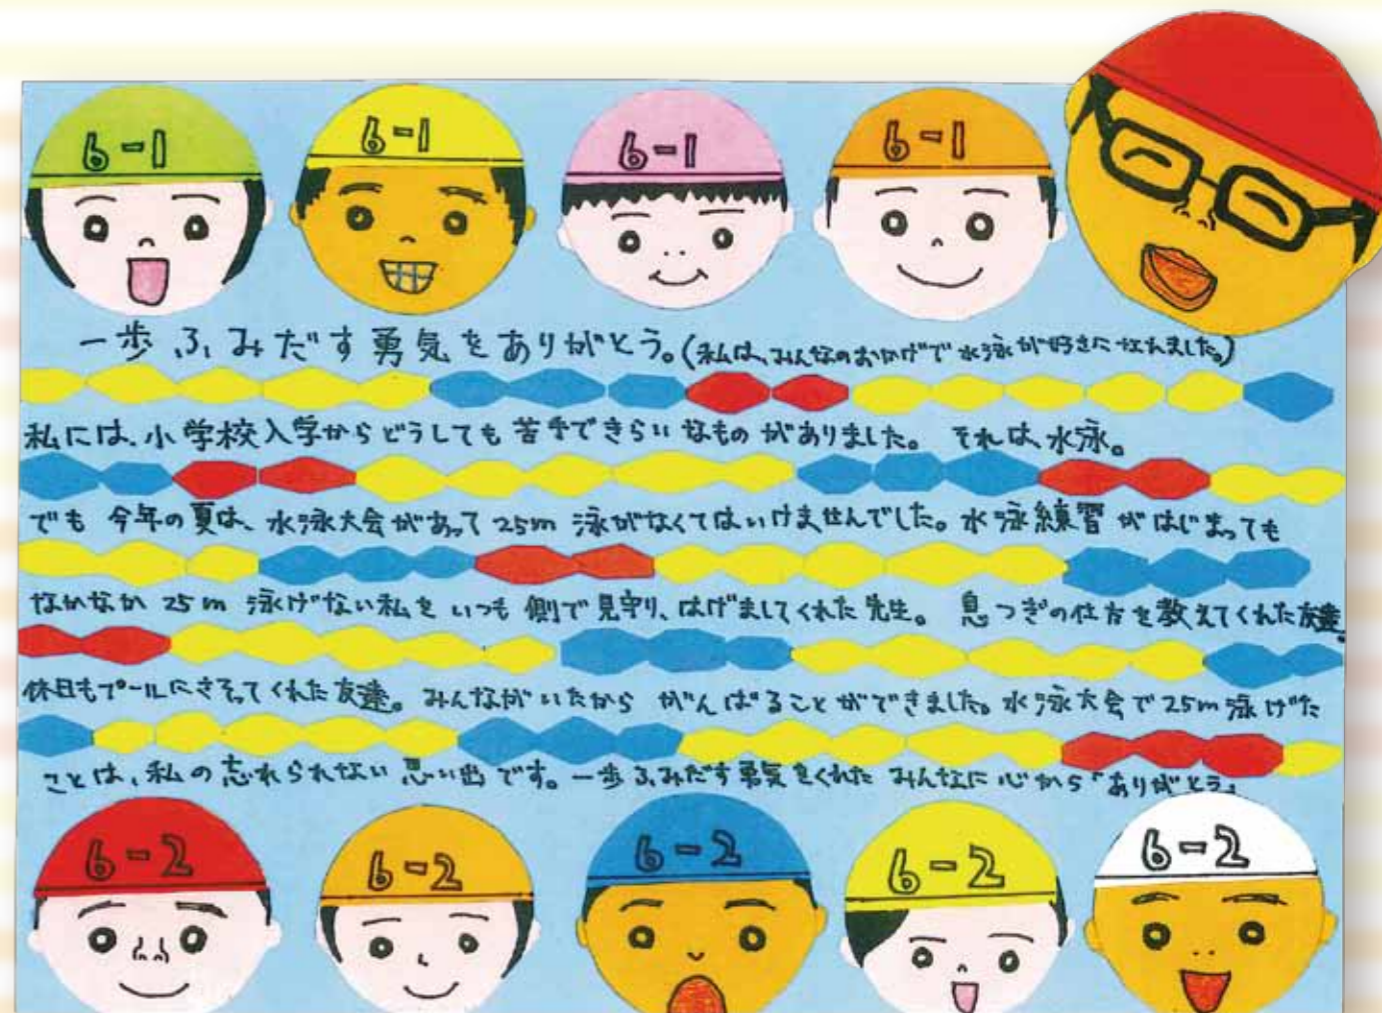 6-1 6-1 6-1 6-1
一歩ふみだす勇気をありがとう。(私は、みんなのおかげで水泳が好きになれました。)
私には、小学校入学からどうしても苦手できらいなものがありました。それは、水泳。
でも今年の夏は、水泳大会があって25m泳がなくてはいけませんでした。水泳練習がはじまっても
なかなか25m泳げない私をいつも側で見守り、はげましてくれた先生。息つぎの仕方を教えてくれた友達。
休日もプールにさそってくれた友達。みんながいたからがんばることができました。水泳大会で25m泳げた
ことは、私の忘れられない思い出です。一歩ふみだす勇気をくれたみんなに心から「ありがとう」
6-2 6-2 6-2 6-2 6-2